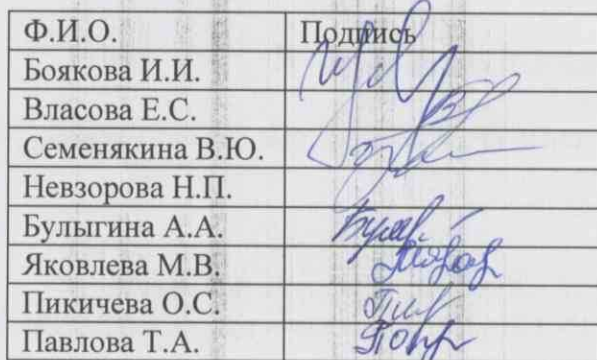 Ф.И.О. Подпись
Боякова И.И.
Власова Е.С.
Семенякина В.Ю.
Невзорова Н.П.
Булыгина А.А.
Яковлева М.В.
Пикичева О.С.
Павлова Т.А.